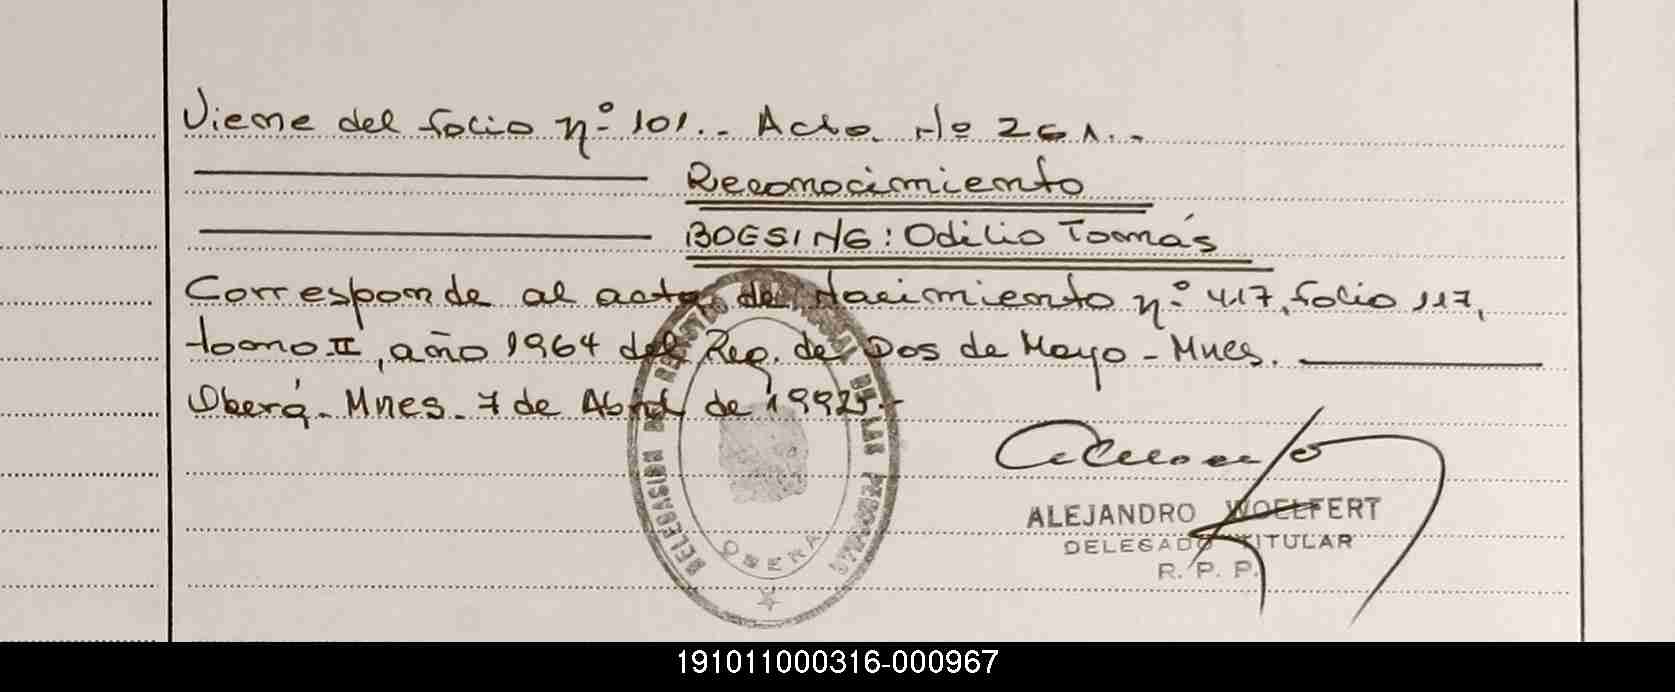 Viene del folio nº 101.- Acta Nº 261.-
Reconocimiento
BOESING: Odilio Tomás
Corresponde al acta de Nacimiento nº 417, folio 117,
tomo II, año 1964 del Reg. de Dos de Mayo - Mnes.
Oberá - Mnes. 7 de Abril de 1992.-
DELEGACION DEL REGISTRO DE LAS PERSONAS
OBERA
ALEJANDRO WOELFERT
DELEGADO TITULAR
R. P. P.
191011000316-000967